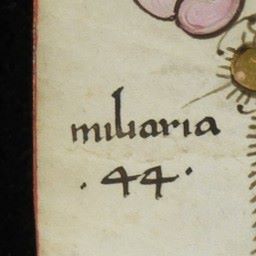 miliaria
· 44 ·